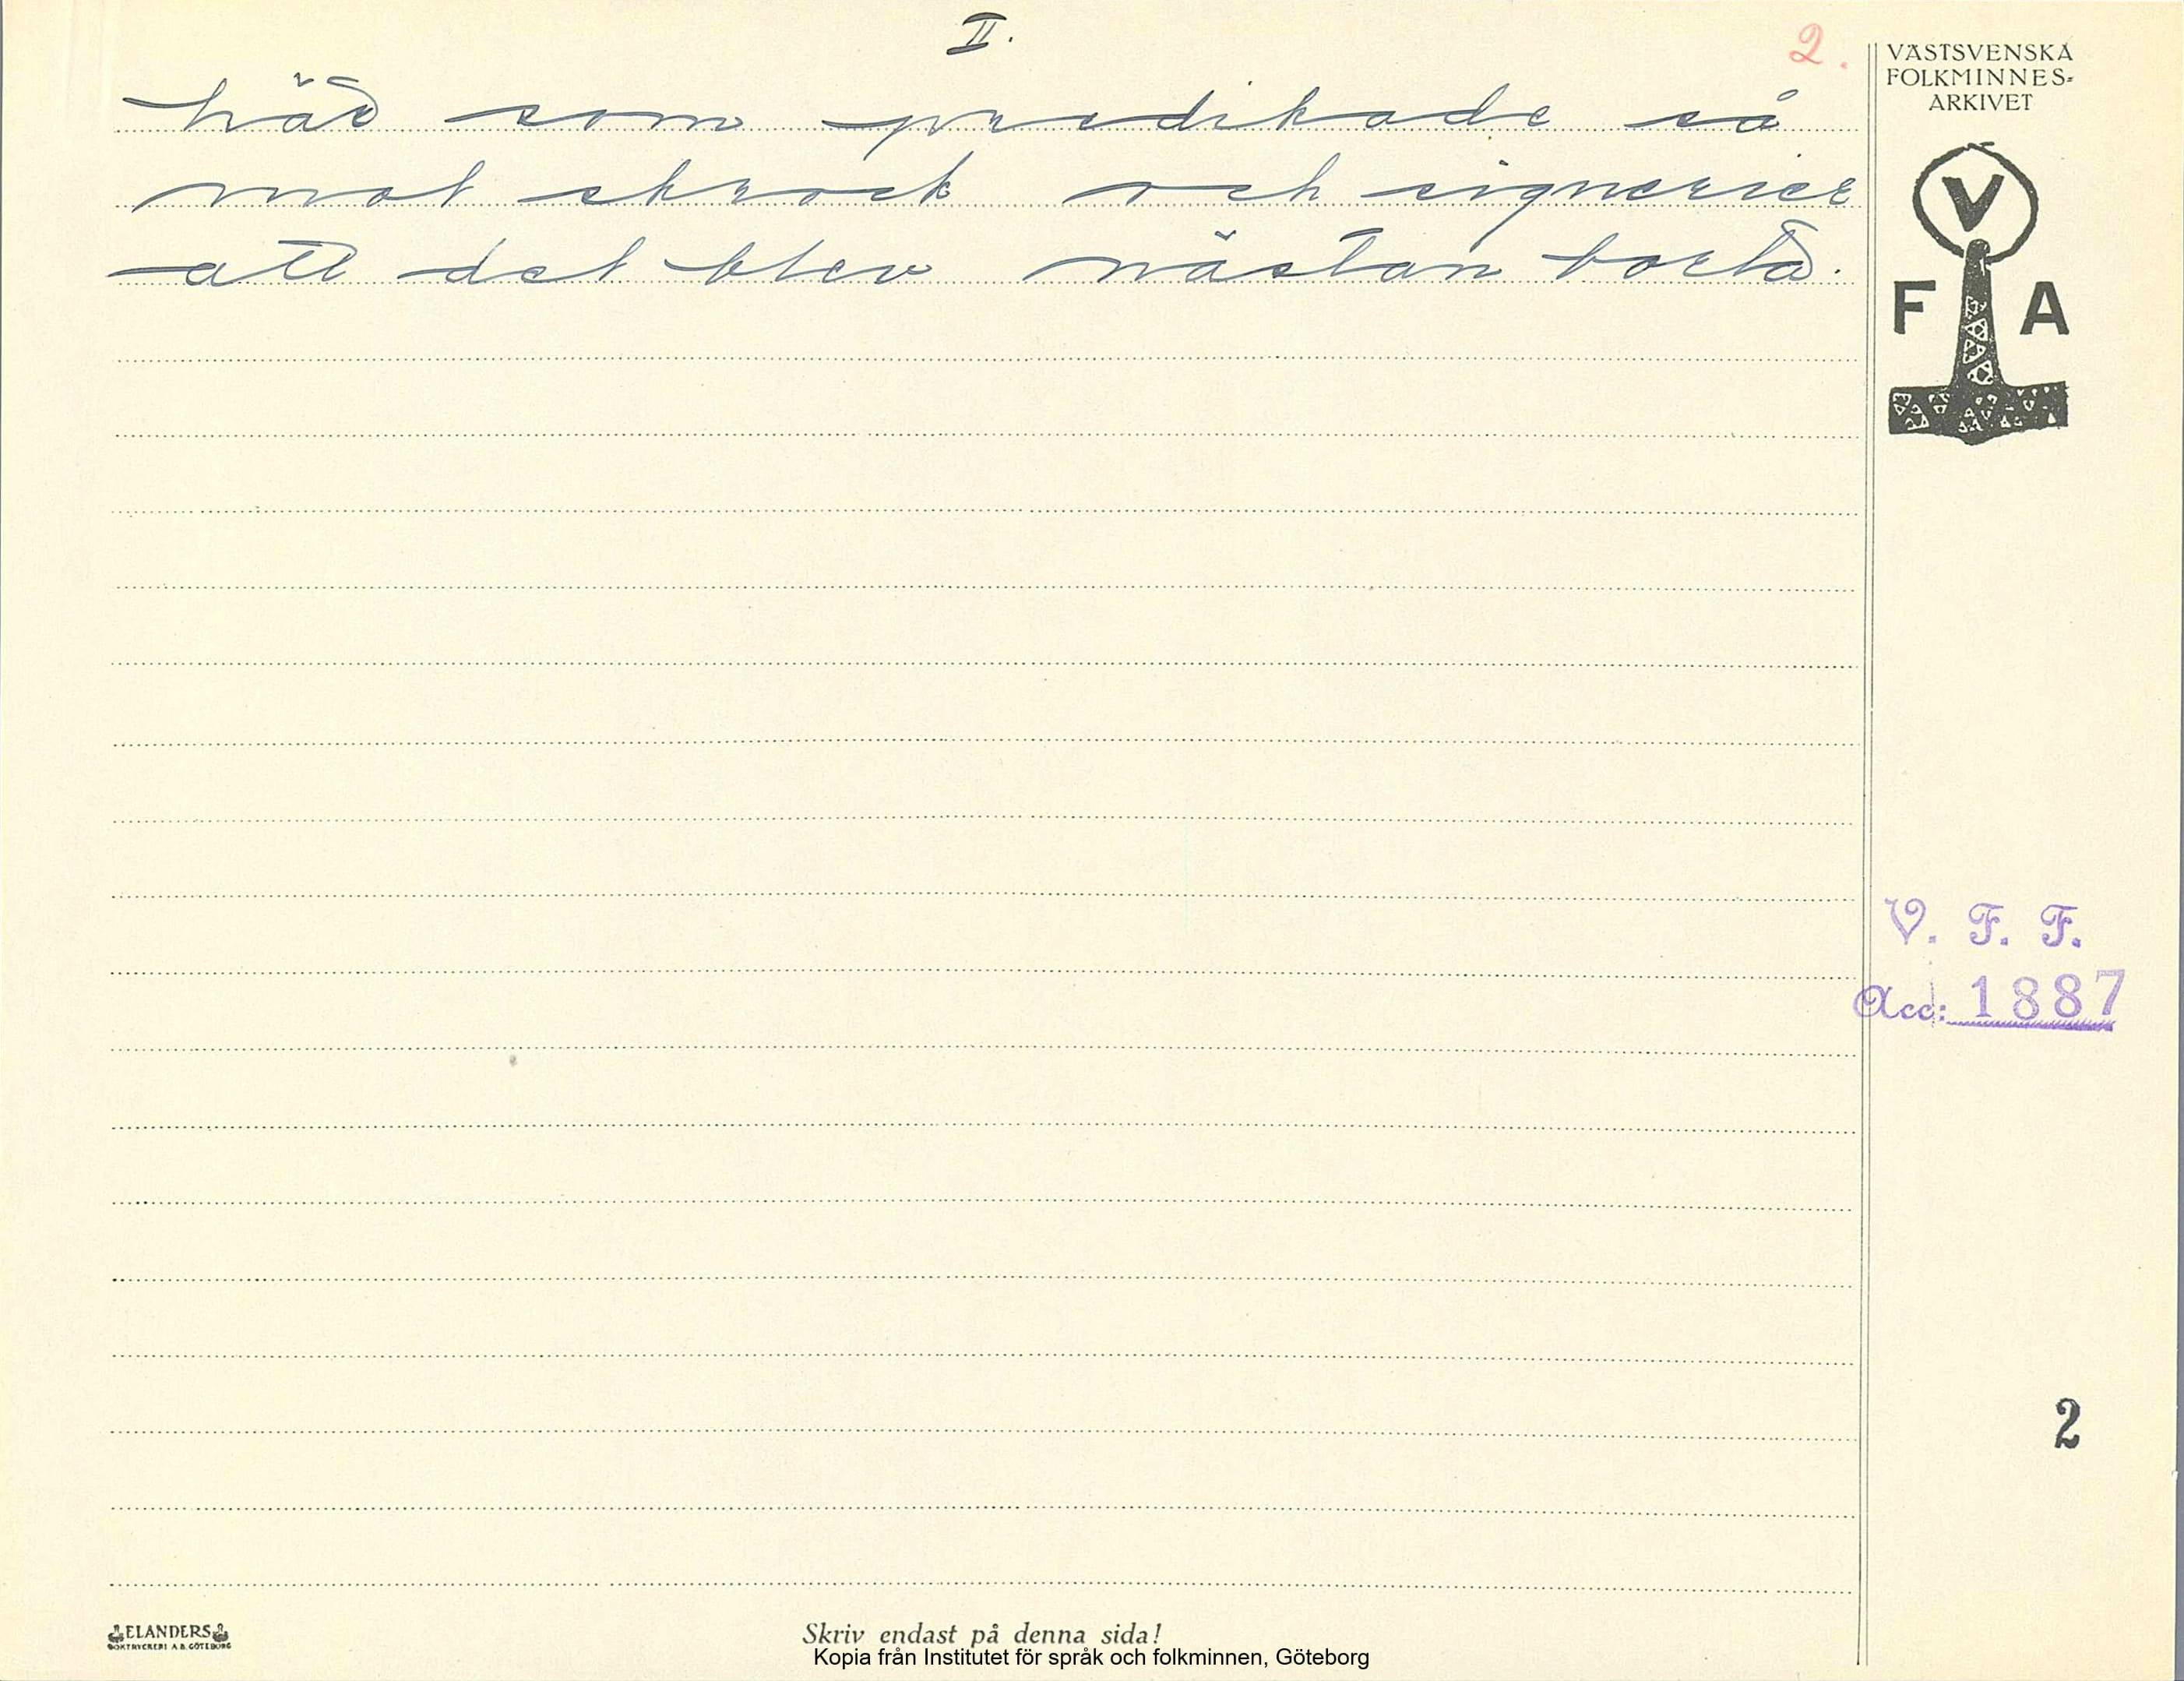 II.
2.
här som predikade så
mot skrock och signerier
att det blev nästan borta.
VÄSTSVENSKA
FOLKMINNES-
ARKIVET
V
F A
V. F. F.
Acc: 1887
2
ELANDERS
BOKTRYCKERI A.B. GÖTEBORG
Skriv endast på denna sida!
Kopia från Institutet för språk och folkminnen, Göteborg